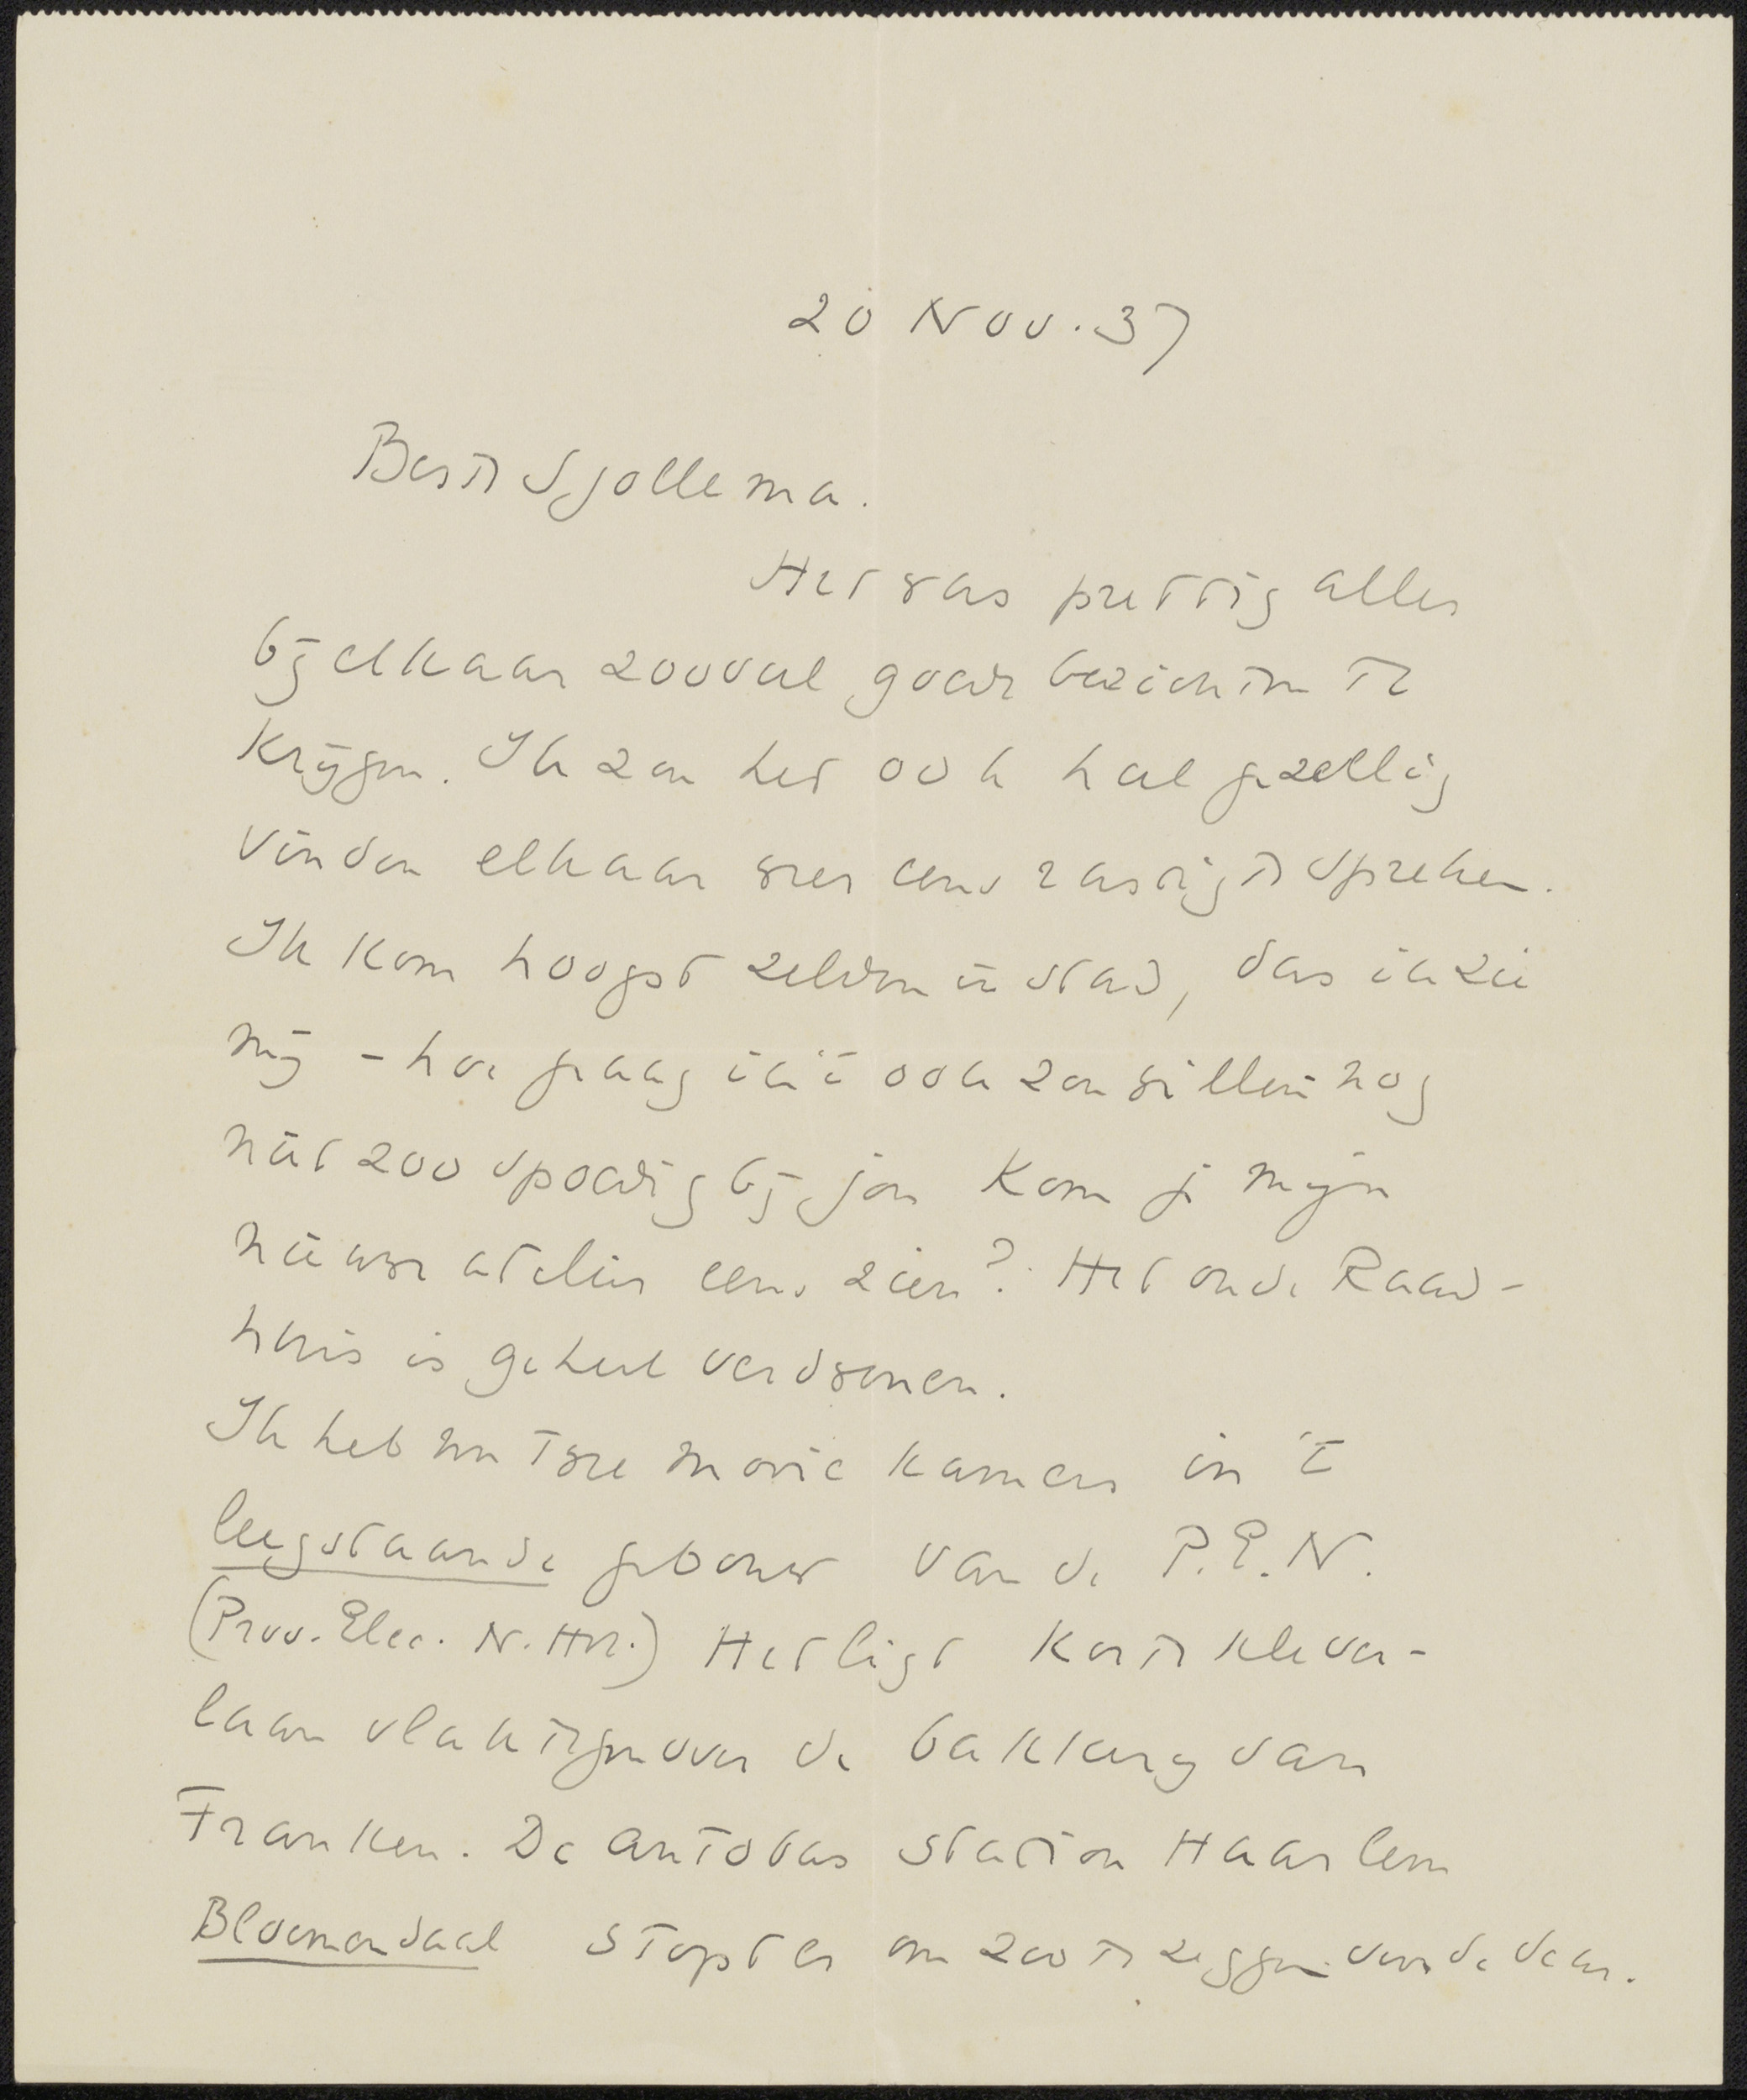 20 Nov. 37
Beste Sjollema.
Het was prettig alles
bij elkaar zooveel goede berichten te
krijgen. Ik zou het ook heel gezellig
vinden elkaar weer eens rustig te spreken.
Ik kom hoogst zelden in stad, dus ik zie
mij – hoe graag ik 't ook zou willen – nog
niet zoo spoedig bij jou Kom je mijn
nieuwe atelier eens zien? Het oude Raad-
huis is geheel verdwenen.
Ik heb nu twee mooie kamers in 't
leegstaande gebouw van de P.E.N.
(Prov. Elec. N. Hol.) Het ligt Korte Klever-
laan vlak tegenover de bakkerij van
Franken. De autobus station Haarlem
Bloemendaal stopt er om zoo te zeggen voor de deur.